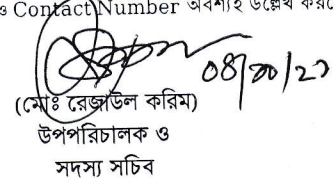 ও Contact Number অবশ্যই উল্লেখ কর
(মোঃ রেজাউল করিম)
উপপরিচালক ও
সদস্য সচিব